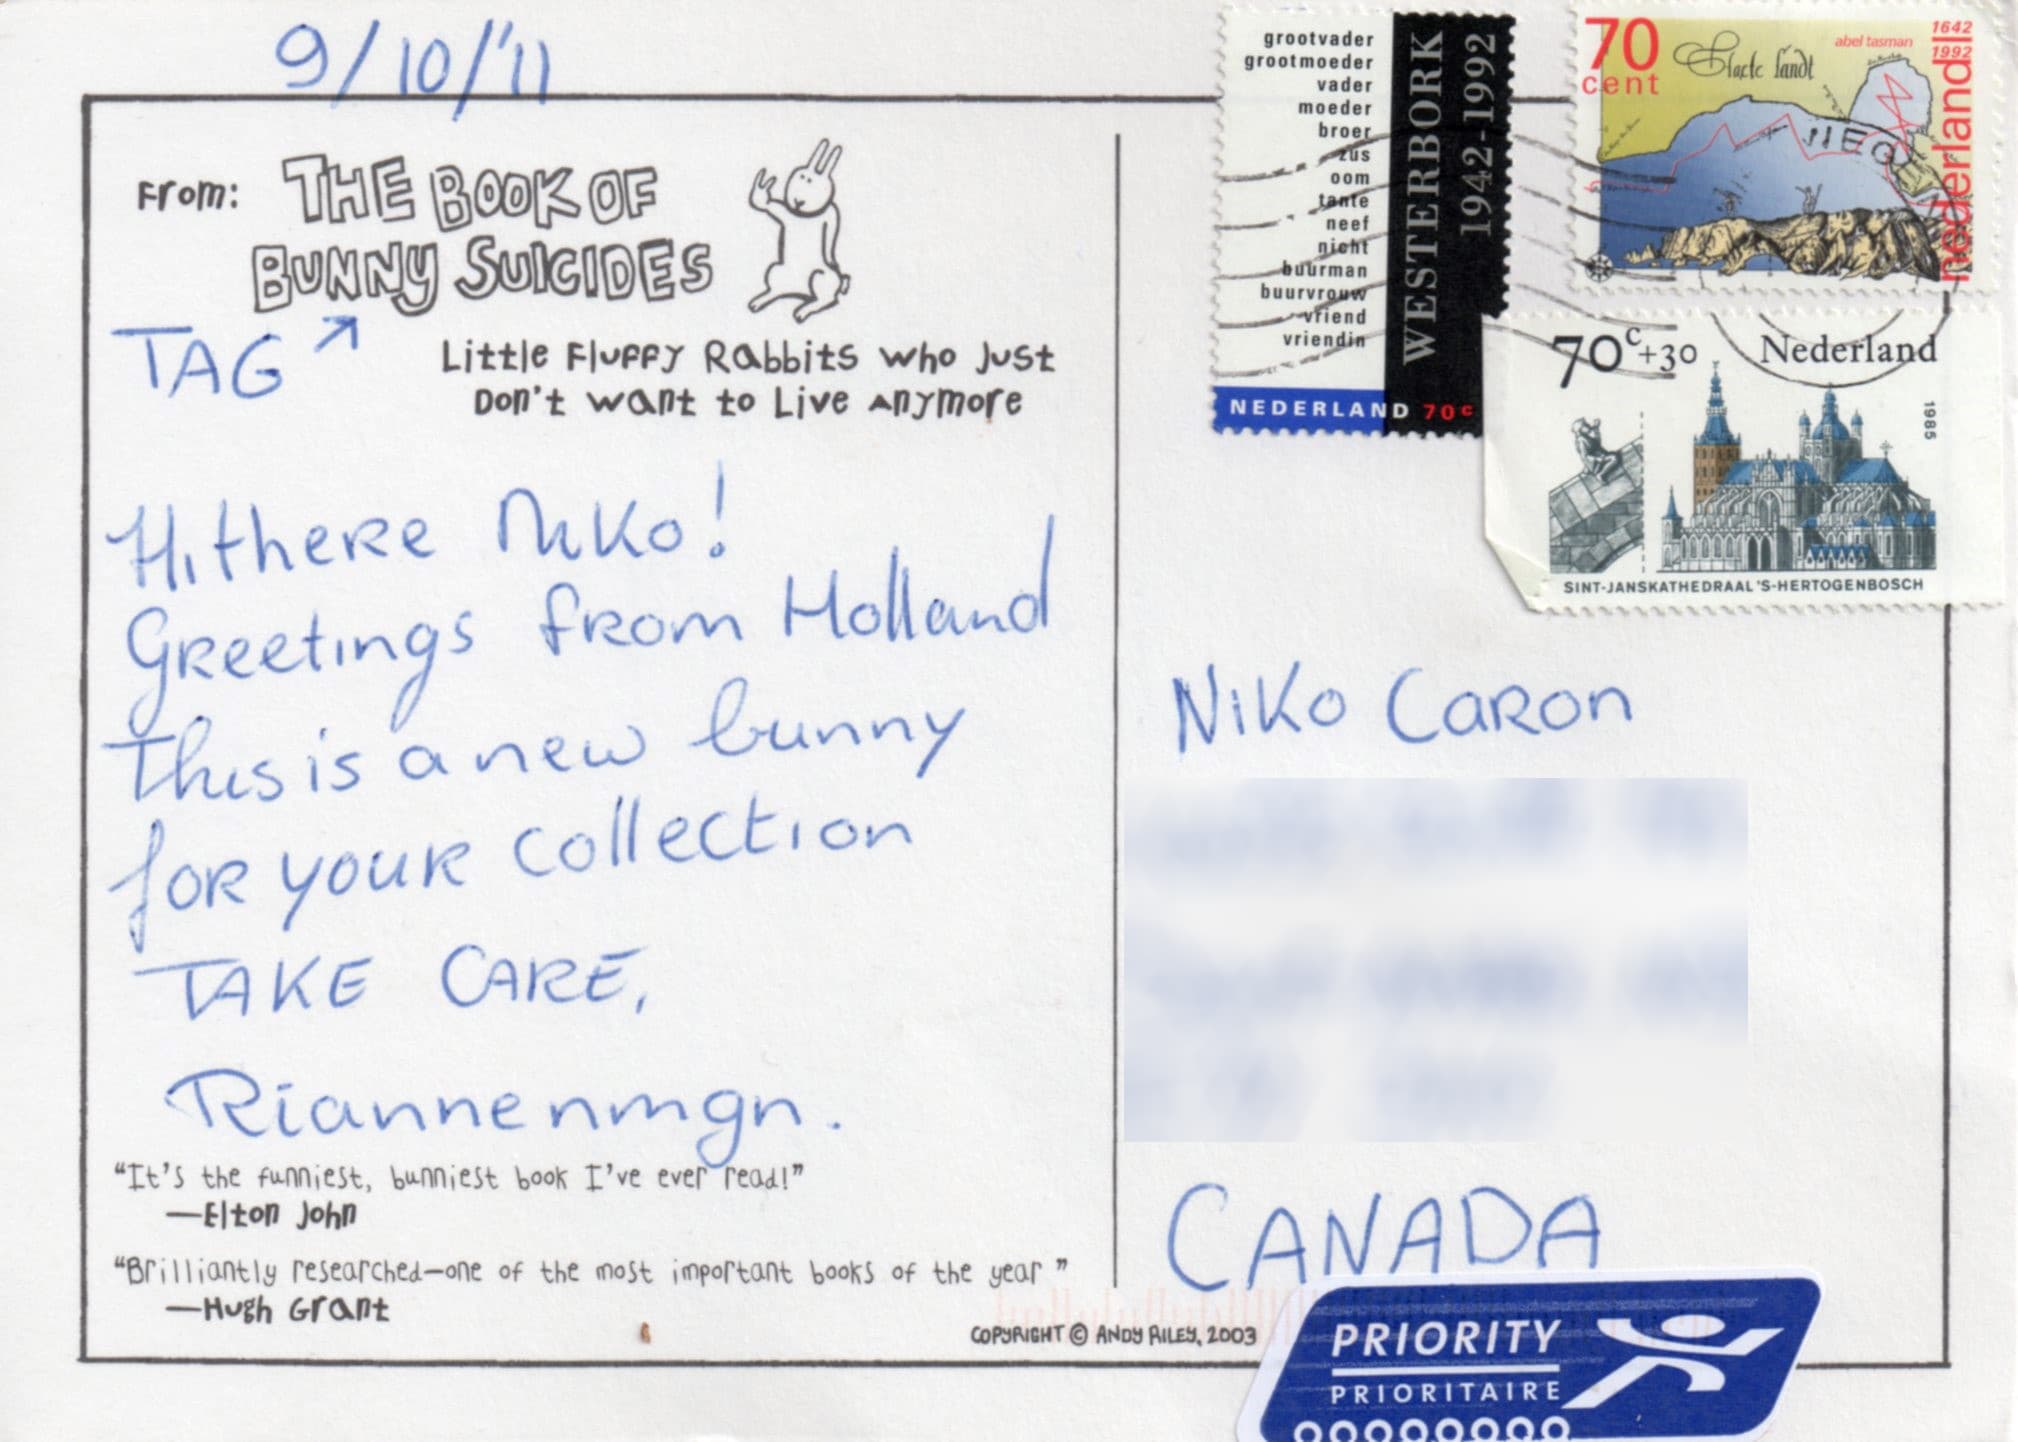 9/10/'11
From: THE BOOK OF
BUNNY SUICIDES
TAG
Little Fluffy Rabbits who Just
Don't want to Live Anymore
Hi there Niko!
Greetings from Holland
This is a new bunny
for your collection
TAKE CARE,
Riannenmgn.
"It's the funniest, bunniest book I've ever read!"
—Elton John
"Brilliantly researched—one of the most important books of the year"
—Hugh Grant
COPYRIGHT © ANDY RILEY, 2003
grootvader
grootmoeder
vader
moeder
broer
zus
oom
tante
neef
nicht
buurman
buurvrouw
vriend
vriendin
WESTERBORK
1942-1992
NEDERLAND 70c
70
cent
Stacte landt
abel tasman
1642
1992
nederland
70c+30
Nederland
1985
SINT-JANSKATHEDRAAL 'S-HERTOGENBOSCH
Niko Caron
CANADA
PRIORITY
PRIORITAIRE